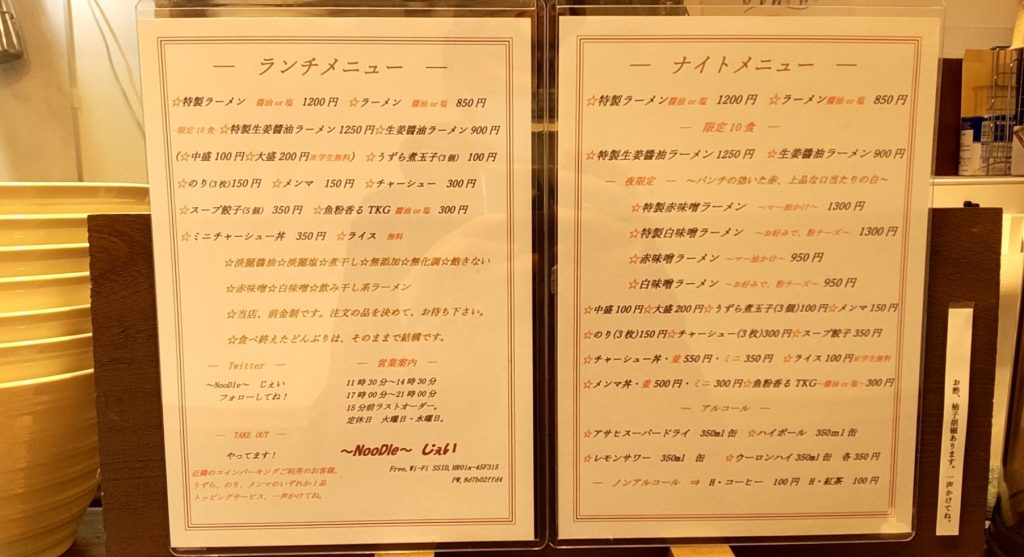 ― ランチメニュー ―
☆特製ラーメン 醤油 or 塩 1200円 ☆ラーメン 醤油 or 塩 850円
限定10食 ☆特製生姜醤油ラーメン 1250円 ☆生姜醤油ラーメン 900円
(☆中盛100円☆大盛200円※学生無料) ☆うずら煮玉子(3個) 100円
☆のり(3枚)150円 ☆メンマ 150円 ☆チャーシュー 300円
☆スープ餃子(5個) 350円 ☆魚粉香る TKG 醤油 or 塩 300円
☆ミニチャーシュー丼 350円 ☆ライス 無料
☆淡麗醤油☆淡麗塩☆煮干し☆無添加☆無化調☆飽きない
☆赤味噌☆白味噌☆飲み干し系ラーメン
☆当店、前金制です。注文の品を決めて、お待ち下さい。
☆食べ終えたどんぶりは、そのままで結構です。
― Twitter ―
～NooDle～ じぇい
フォローしてね！
― 営業案内 ―
11時30分～14時30分
17時00分～21時00分
15分前ラストオーダー。
定休日 火曜日・水曜日。
― TAKE OUT ―
やってます！
近隣のコインパーキングご利用のお客様。
うずら、のり、メンマのいずれか1品
トッピングサービス、一声かけてね。
～NooDle～ じぇい
Free,Wi-Fi SSID,HR01a-45F315
PW,8d7b02ffd4
― ナイトメニュー ―
☆特製ラーメン 醤油 or 塩 1200円 ☆ラーメン 醤油 or 塩 850円
― 限定10食 ―
☆特製生姜醤油ラーメン 1250円 ☆生姜醤油ラーメン 900円
― 夜限定 ― ～パンチの効いた赤、上品な口当たりの白～
☆特製赤味噌ラーメン ～マー油かけ～ 1300円
☆特製白味噌ラーメン ～お好みで、粉チーズ～ 1300円
☆赤味噌ラーメン ～マー油かけ～ 950円
☆白味噌ラーメン ～お好みで、粉チーズ～ 950円
☆中盛100円☆大盛200円☆うずら煮玉子(3個)100円☆メンマ150円
☆のり(3枚)150円☆チャーシュー(3枚)300円☆スープ餃子350円
☆チャーシュー丼・並550円・ミニ350円 ☆ライス100円※学生無料
☆メンマ丼・並500円・ミニ300円☆魚粉香る TKG～醤油 or 塩～300円
― アルコール ―
☆アサヒスーパードライ 350ml缶 ☆ハイボール 350ml缶
☆レモンサワー 350ml 缶 ☆ウーロンハイ350ml缶 各350円
― ノンアルコール ⇒ H・コーヒー 100円 H・紅茶 100円
お酢、柚子胡椒あります。一声かけてね。